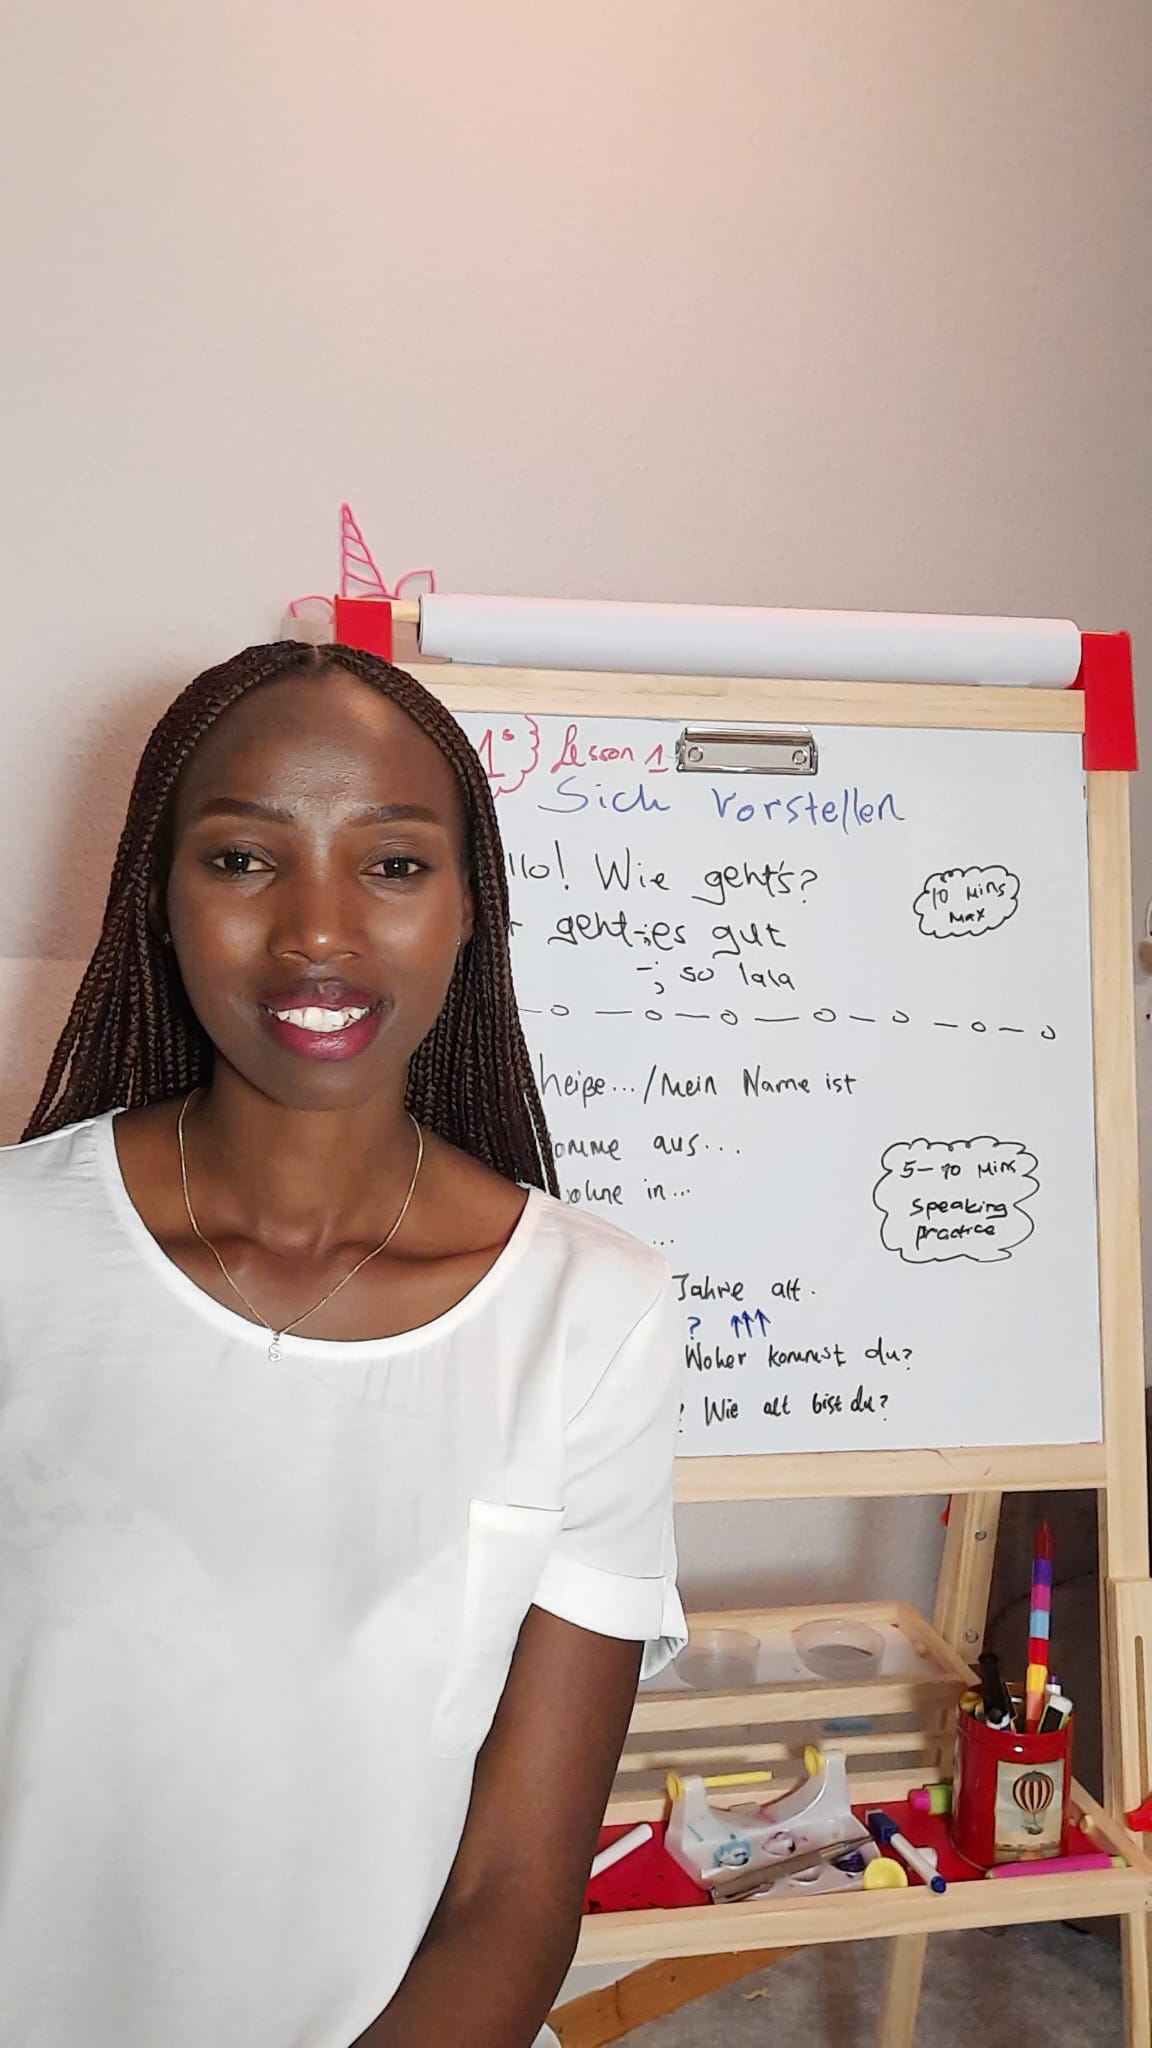 1s} Lesson 1
Sich Vorstellen
llo! Wie geht's?
r geht-;es gut
-; so lala
10 Mins
Max
heiße... /Mein Name ist
omme aus...
wohne in...
...
5-10 Mins
Speaking
practice
Jahre alt.
? ↑↑↑
Woher kommst du?
? Wie alt bist du?
S